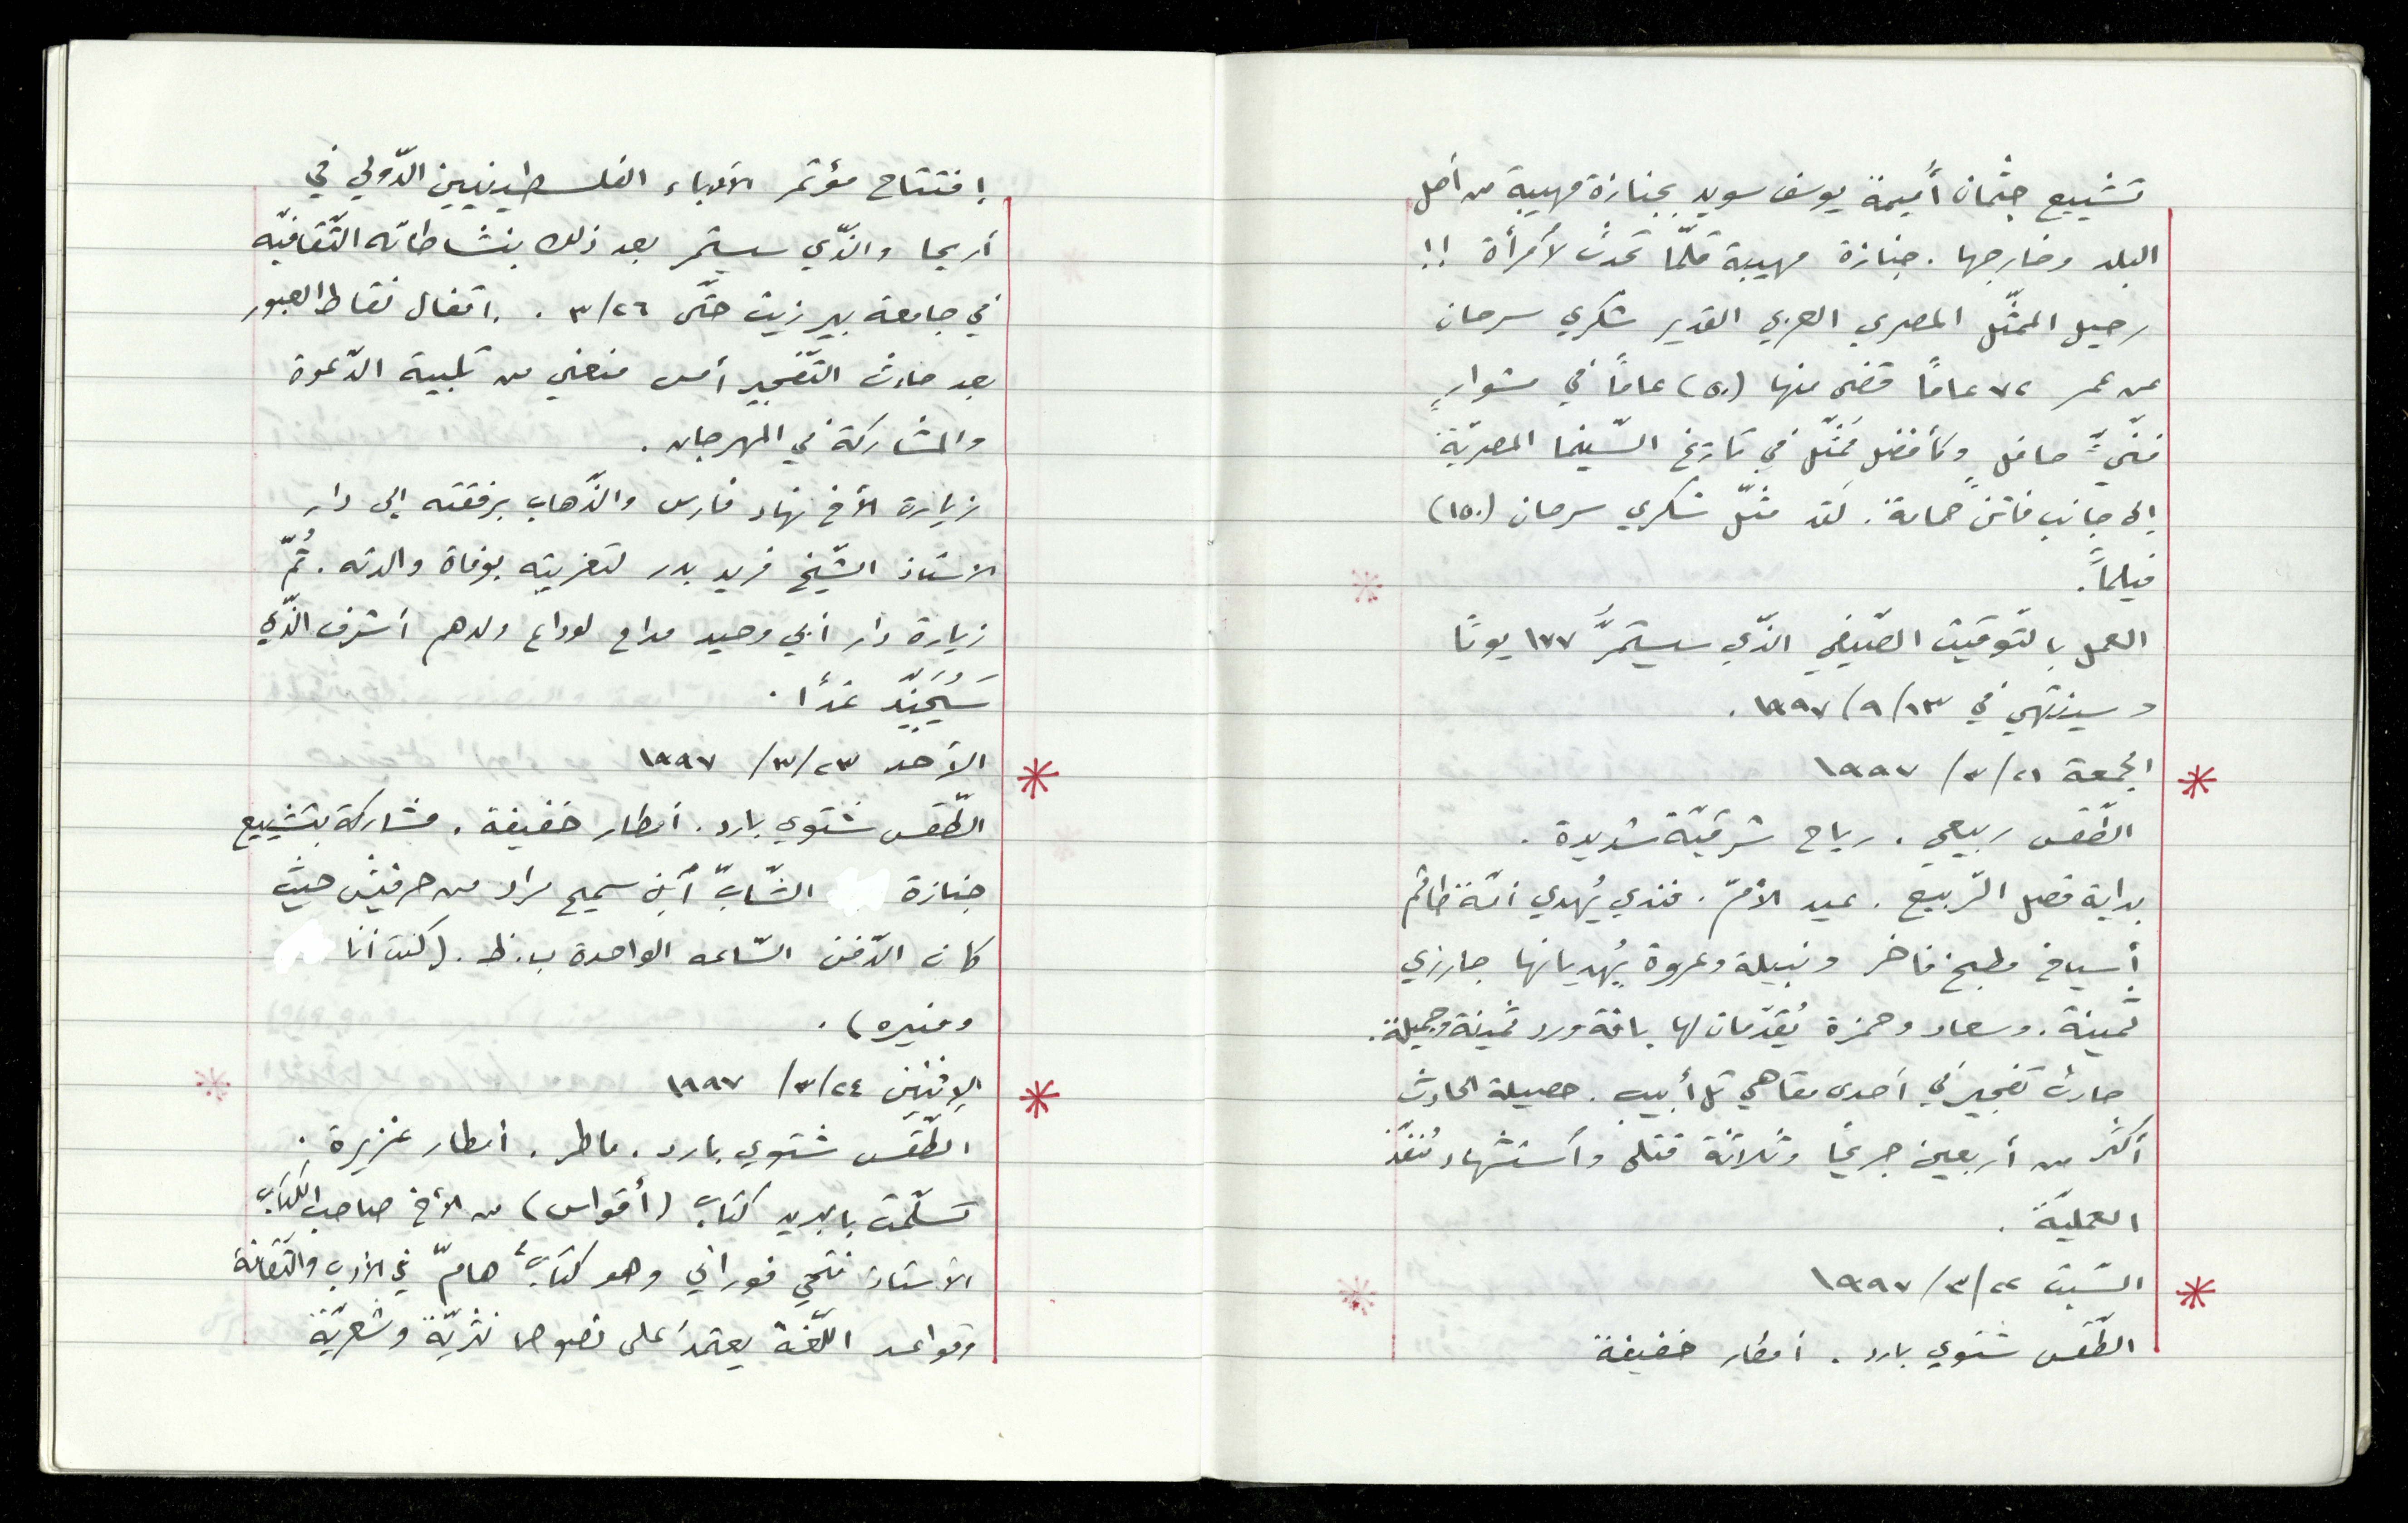 تشييع جثمان أميمة يوسف سويد بجنازة مهيبة من أهل
البلد وخارجها. جنازة مهيبة قلّما تحدث لأمرأة !!
رحيل الممثّل المصري العربي القدير شكري سرحان
عن عمر ٧٢ عامًا قضى منها (٥٠) عامًا في مشوارٍ
فنّيٍّ حافلٍ وكأفضل ممثّل في تاريخ السّينما المصريّة
إلى جانب فاتن حمامة. لقد مثّل شكري سرحان (١٥٠)
فيلمًا.
العمل بالتّوقيت الصّيفي الذّي سيستمرّ ١٧٧ يومًا
وسينتهي في ١٣/٩/١٩٩٧.
* الجمعة ٢١/٣/١٩٩٧
الطّقس ربيعي. رياح شرقيّة شديدة.
بداية فصل الرّبيع. عيد الأمّ. فندي يُهدي أمّه طاقم
أسياخ مطبخ فاخر ونبيلة وعروة يُهديانها جارزي
ثمينة. وسعاد وحمزة يُقدّمان لها باقة ورد ثمينة وجميلة.
حادث تفجير في احدى مقاهي تل أبيب. حصيلة الحادث
أكثر من أربعين جريحًا وثلاثة قتلى وأستشهاد مُنفّذ
العمليّة.
* السّبت ٢٢/٣/١٩٩٧
الطّقس شتوي بارد. أمطار خفيفة
إفتتاح مؤتمر الأدباء الفلسطينيين الدّولي في
أريحا والذّي سيستمر بعد ذلك بنشاطاته الثّقافيّه
في جامعة بير زيت حتّى ٢٦/٣. اقفال نقاط العبور
بعد حادث التّفجير أمس منعني من تلبية الدّعوة
والمشاركة في المهرجان.
زيارة الأخ نهاد فارس والذّهاب برفقته إلى دار
الاستاذ الشّيخ فريد بدر لتعزيته بوفاة والدته. ثُمّ
زيارة دار أبي وحيد مداح لوداع ولدهم أشرف الذّي
سَيُجَنّد غدًا.
* الأحد ٢٣/٣/١٩٩٧
الطّقس شتوي بارد. أمطار خفيفة. مشاركة بتشييع
جنازة الشّابّ أبن سميح مراد من حرفيش حيث
كان الدّفن السّاعه الواحدة ب.ظ. (كنت أنا
ومنيره).
* الإثنين ٢٤/٣/١٩٩٧
الطّقس شتوي بارد. ماطر. أمطار غزيرة.
تسلّمت بالبريد كتاب (أقواس) من الأخ صاحب الكتاب
الأستاذ فتحي فوراني وهو كتابٌ هامّ في الأدب والثّقافة
وقواعد اللّغة يعتمد على نصوصا نثريّة وشعريّة